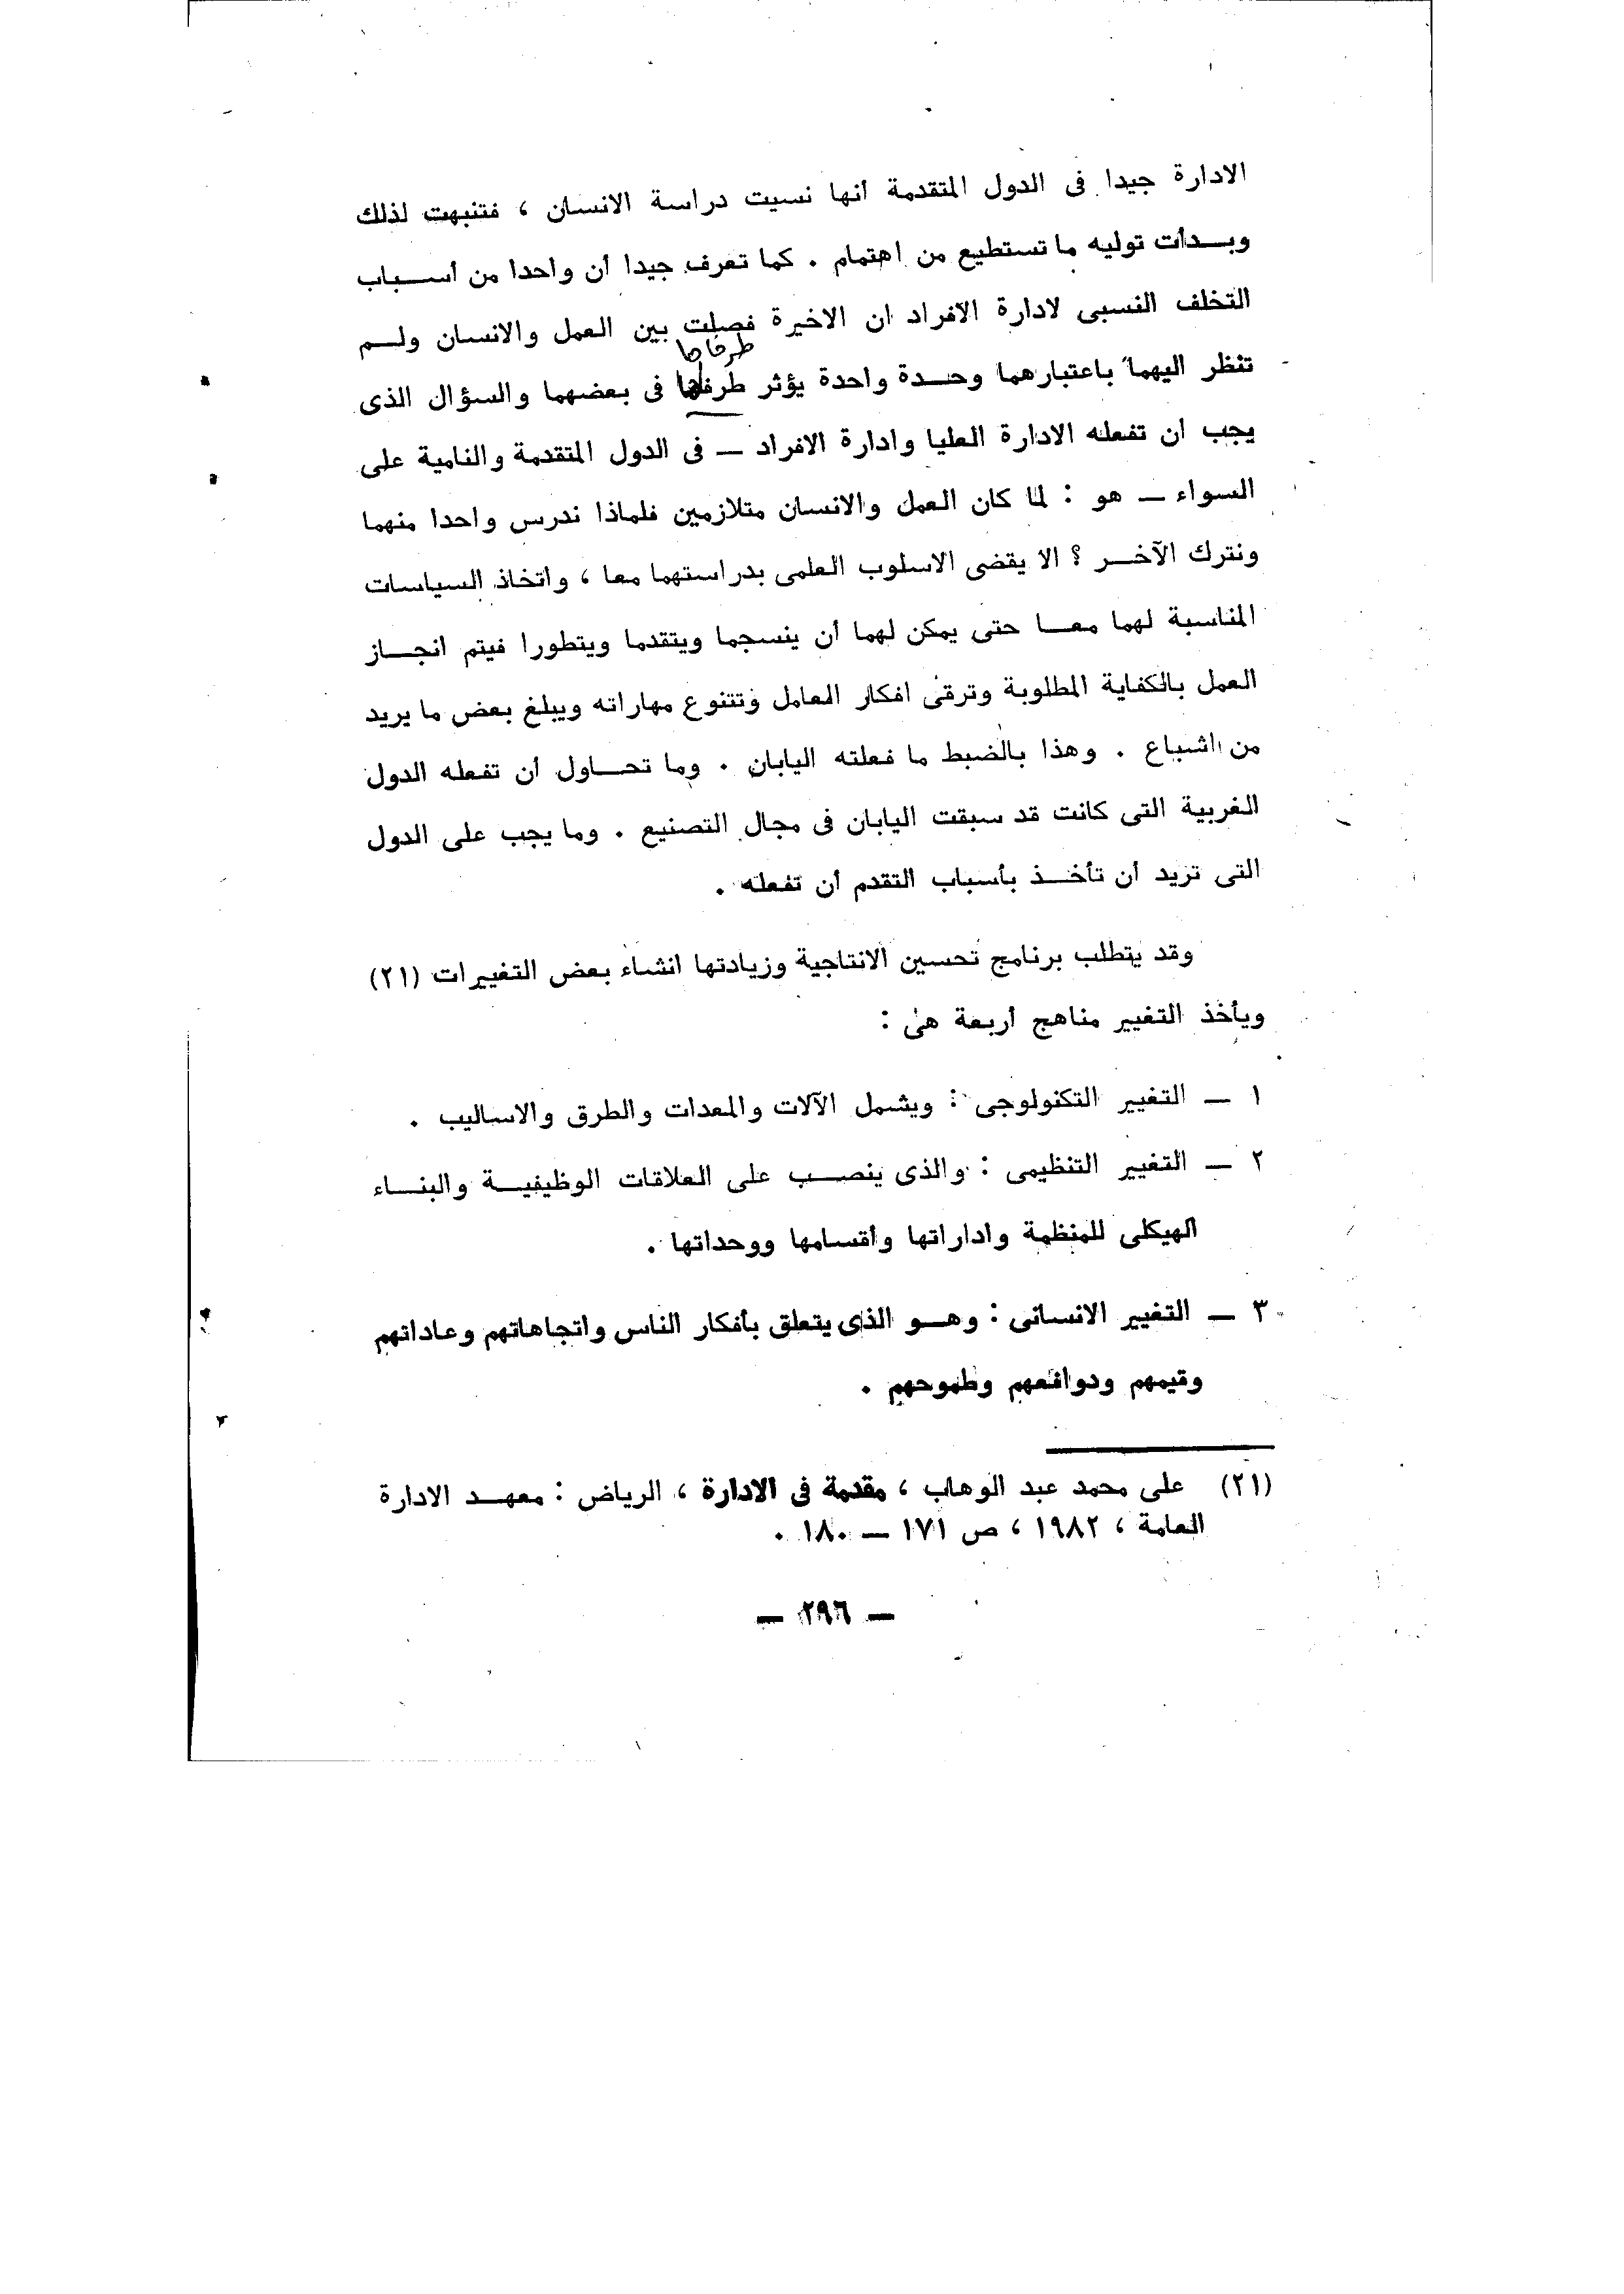 الادارة جيدا فى الدول المتقدمة أنها نسيت دراسة الانسان ، فتنبهت لذلك
وبـدأت توليه ما تستطيع من اهتمام . كما تعرف جيدا أن واحدا من أسـباب
التخلف النسبى لادارة الافراد ان الاخيرة فصلت بين العمل والانسان ولـم
طرفاها
تنظر اليهما باعتبارهما وحـدة واحدة يؤثر طرفاها فى بعضهما والسؤال الذى
يجب ان تفعله الادارة العليا وادارة الافراد — فى الدول المتقدمة والنامية على
السواء — هو : لما كان العمل والانسان متلازمين فلماذا ندرس واحدا منهما
ونترك الآخـر ؟ الا يقضى الاسلوب العلمى بدراستهما معا ، واتخاذ السياسات
المناسبة لهما معـا حتى يمكن لهما أن ينسجما ويتقدما ويتطورا فيتم انجـاز
العمل بالكفاية المطلوبة وترقى افكار العامل وتتنوع مهاراته ويبلغ بعض ما يريد
من اشباع . وهذا بالضبط ما فعلته اليابان . وما تحـاول أن تفعله الدول
الغربية التى كانت قد سبقت اليابان فى مجال التصنيع . وما يجب على الدول
التى تريد أن تأخـذ بأسباب التقدم أن تفعله .
وقد يتطلب برنامج تحسين الانتاجية وزيادتها انشاء بعض التغييرات (٢١)
ويأخذ التغيير مناهج أربعة هى :
١ — التغيير التكنولوجى : ويشمل الآلات والمعدات والطرق والاساليب .
٢ — التغيير التنظيمى : والذى ينصـب على العلاقات الوظيفيـة والبنـاء
الهيكلى للمنظمة واداراتها وأقسامها ووحداتها .
٣ — التغيير الانسانى : وهـو الذى يتعلق بأفكار الناس واتجاهاتهم وعاداتهم
وقيمهم ودوافعهم وطموحهم .
(٢١) على محمد عبد الوهاب ، مقدمة فى الادارة ، الرياض : معهـد الادارة
العامة ، ١٩٨٢ ، ص ١٧١ — ١٨٠ .
— ٢٩٦ —